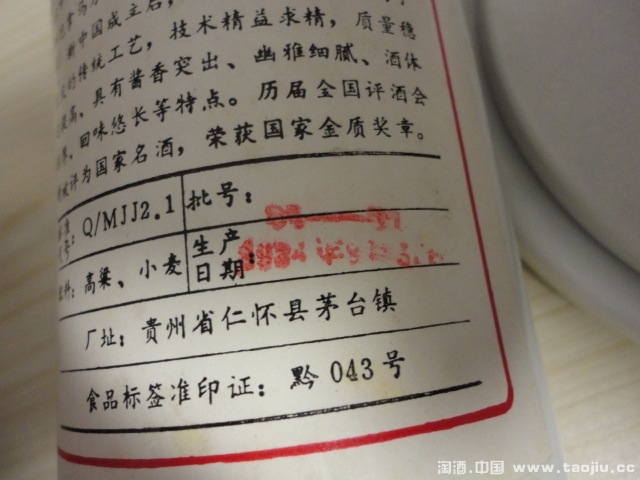 新中国成立后,
的传统工艺, 技术精益求精, 质量稳
具有酱香突出、幽雅细腻、酒体
回味悠长等特点。历届全国评酒会
评为国家名酒, 荣获国家金质奖章。
Q/MJJ2.1 批号:
高粱、小麦 生产日期:
厂址: 贵州省仁怀县茅台镇
食品标签准印证: 黔 043 号
淘酒.中国 www.taojiu.cc